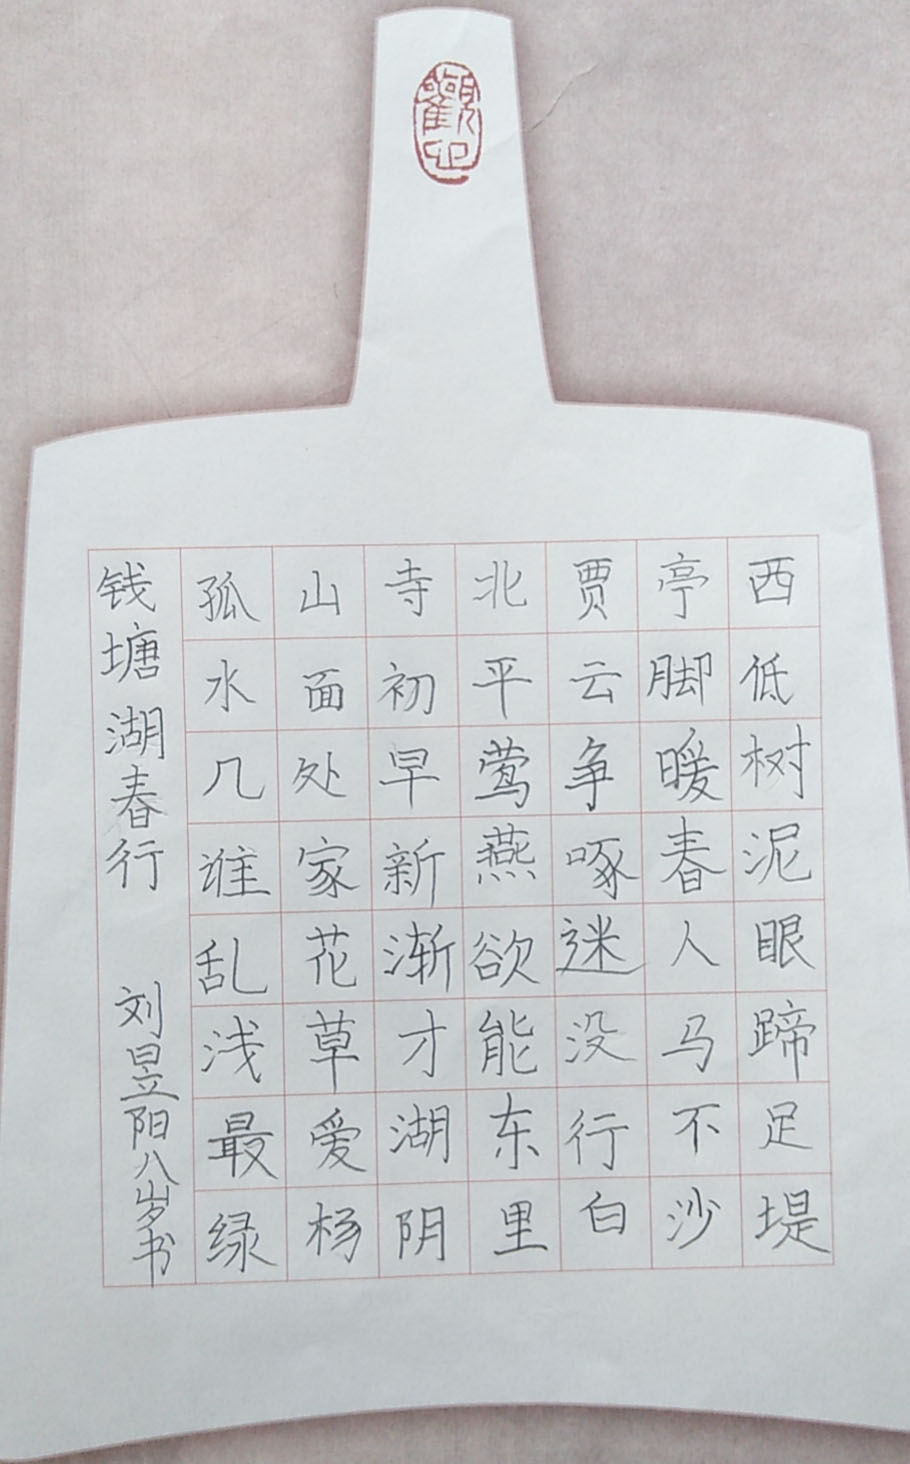 觀
钱塘湖春行
刘昱阳八岁书
孤山寺北贾亭西
水面初平云脚低
几处早莺争暖树
谁家新燕啄春泥
乱花渐欲迷人眼
浅草才能没马蹄
最爱湖东行不足
绿杨阴里白沙堤